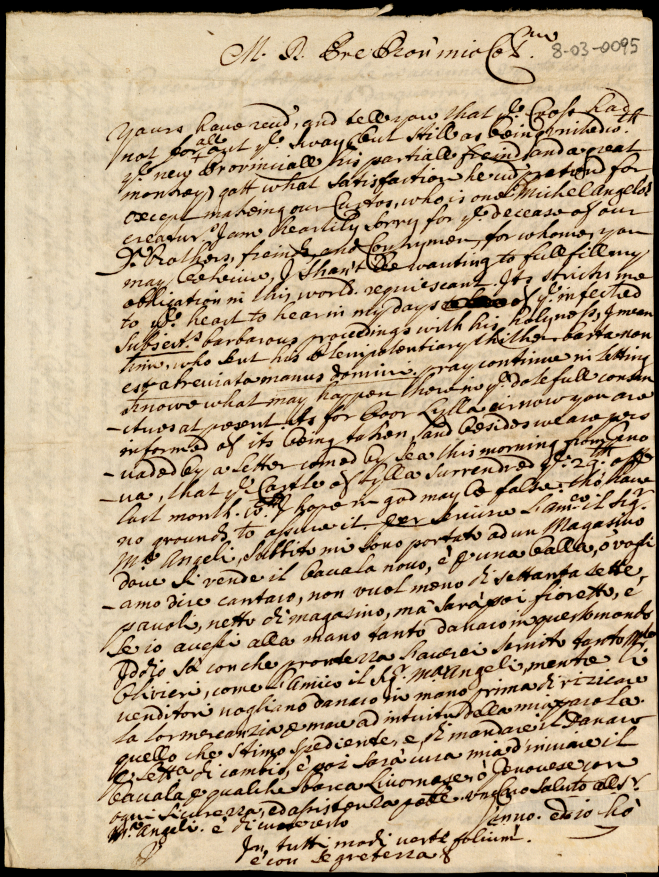 M. R. Pre Pron mio Col.mo
8-03-0095
Yours have rec'd, and tell you that ye Cross had
not for all out ye sway, but still as being united with
ye new Provinciall his partiall freind (and a great
monkey) gott what satisfaction he cu'd pretend for
except making our Custos, who is one Michel Angelo's
creatur. I am heartily sorry for ye decease of our
Ds Brothers, freinds, and Contrymen, for whome, you
may beheive, I shan't be wanting to fullfill my
obligation in this world. requiescant. Its strichs me
to ye heart to hear in my days of ye infected
Subjects barbarous proceedings with his holyness, I mean
him, who sent his plenipotentiary thither basta non
est abreviata manus domini. pray continue in letting
knowe what may happen there in ye dolefull conjun
-ctures at present. Its for poor Lylla einow you are
informed of its being taken, and besides we are pers
-uaded by a letter comed by sea this morning from Geno
-va, that ye Castle of Lylla surrendred ye 29th off
last month. wch I hope in god may be false. tho' have
no grounds to assure it. per servire l'am.co il Sigr
Mo Angeli, subbito mi sono portato ad un Magasino
dove si vende il Cavala novo, è una balla, ò vogli
-amo dire cantaro, non vuol meno di settanta sette
pavoli, netto di magasino, ma sarà poi fioretto, è
se io avessi alla mano tanto danaro in questo mondo
Iddio sà con che prontezza l'averei servito tanto Mro
Olivieri, come l'amico il Sigr Mo Angeli, mentre li
venditori vogliono danaro in mano prima di rizicare
la lor mercanzia e mare ad intuito della mia parola.
quello che stimo spediente, e di mandare il danaro
e setta di cambio, è poi sarà cura mia d'inviare il
Cavala e qualche barca Livornese, ò Jenovese con
ogni sicurezza, ed assistenza potte. un caro saluto al Sr
Mo Angeli. è di vivo certo anno. ed io hò
In tutti modi verte folium.
è con segretezza &